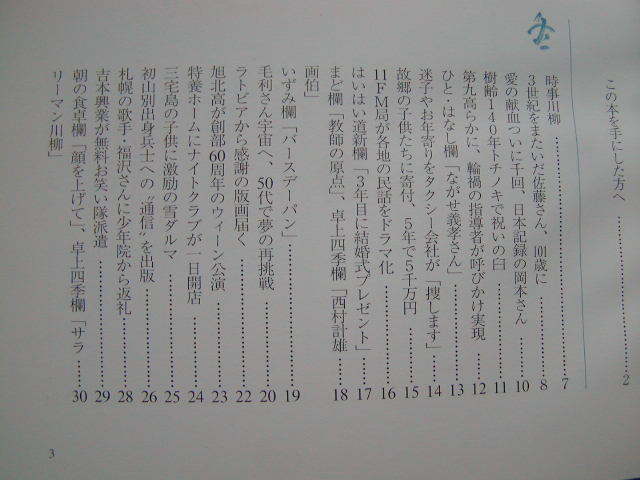 この本を手にした方へ……2
冬
時事川柳……7
3世紀をまたいだ佐藤さん、101歳に……8
愛の献血ついに千回、日本記録の岡本さん……10
樹齢140年トチノキで祝いの臼……11
第九高らかに、輪禍の指導者が呼びかけ実現……12
ひと・はなし欄「ながせ義孝さん」……13
迷子やお年寄りをタクシー会社が「捜します」……14
故郷の子供たちに寄付、5年で5千万円……15
11FM局が各地の民話をドラマ化……16
はいはい道新欄「3年目に結婚式プレゼント」……17
まど欄「教師の原点」、卓上四季欄「西村計雄
画伯」……18
いずみ欄「バースデーパン」……19
毛利さん宇宙へ、50代で夢の再挑戦……20
ラトビアから感謝の版画届く……22
旭北高が創部60周年のウィーン公演……23
特養ホームにナイトクラブが一日開店……24
三宅島の子供に激励の雪ダルマ……25
初山別出身兵士への〝通信〟を出版……26
札幌の歌手・福沢さんに少年院から返礼……28
吉本興業が無料お笑い隊派遣……29
朝の食卓欄「顔を上げて」、卓上四季欄「サラ
リーマン川柳」……30
3